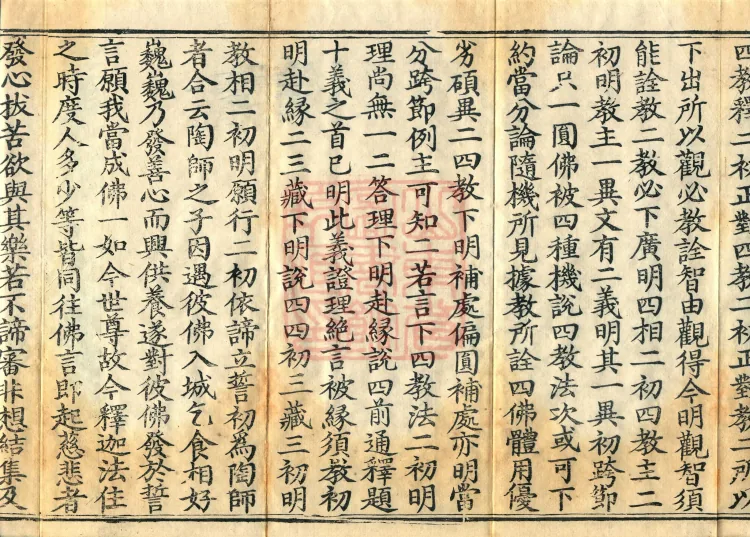 四教釋二初正對四教二初正對教二所以
下出所以觀必教詮智由觀得今明觀智須
能詮教二教必下廣明四相二初四教主二
初明教主一異文有二義明其一異初跨節
論只一圓佛被四種機說四教法次或可下
約當分論隨機所見據教所詮四佛體用優
劣碩異二四教下明補處偏圓補處亦明當
分跨節例主可知二若言下四教法二初明
理尚無一二答理下明赴緣說四前通釋題
十義之首已明此義證理絕言被緣須教初
明赴緣二三藏下明說四四初三藏三初明
教相二初明願行二初依諦立誓初為陶師
者合云陶師之子因遇彼佛入城乞食相好
巍巍乃發善心而興供養遂對彼佛發於誓
言願我當成佛一如今世尊故今釋迦法住
之時度人多少等皆同往佛言即起慈悲者
發心拔苦欲與其樂若不諦審非想結集及